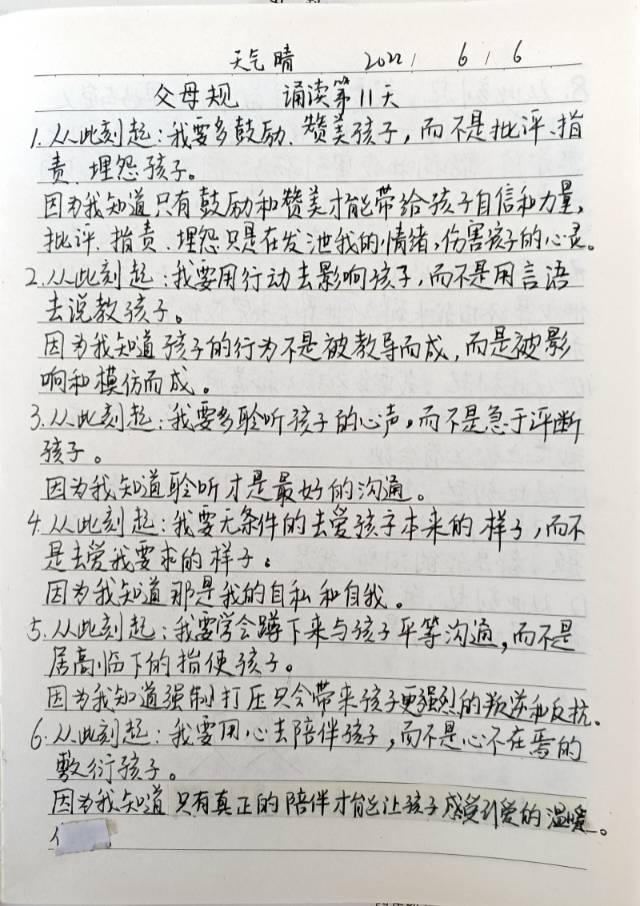 天气晴 2022/ 6/6
父母规 诵读第11天
1.从此刻起:我要多鼓励、赞美孩子,而不是批评、指
责、埋怨孩子。
因为我知道只有鼓励和赞美才能带给孩子自信和力量,
批评、指责、埋怨只是在发泄我的情绪,伤害孩子的心灵。
2.从此刻起:我要用行动去影响孩子,而不是用言语
去说教孩子。
因为我知道孩子的行为不是被教导而成,而是被影
响和模仿而成。
3.从此刻起:我要多聆听孩子的心声,而不是急于评断
孩子。
因为我知道聆听才是最好的沟通。
4.从此刻起:我要无条件的去爱孩子本来的样子,而不
是去爱我要求的样子。
因为我知道那是我的自私和自我。
5.从此刻起:我要学会蹲下来与孩子平等沟通,而不是
居高临下的指使孩子。
因为我知道强制打压只会带来孩子更强烈的叛逆和反抗。
6.从此刻起:我要用心去陪伴孩子,而不是心不在焉的
敷衍孩子。
因为我知道只有真正的陪伴才能让孩子感受到爱的温暖。